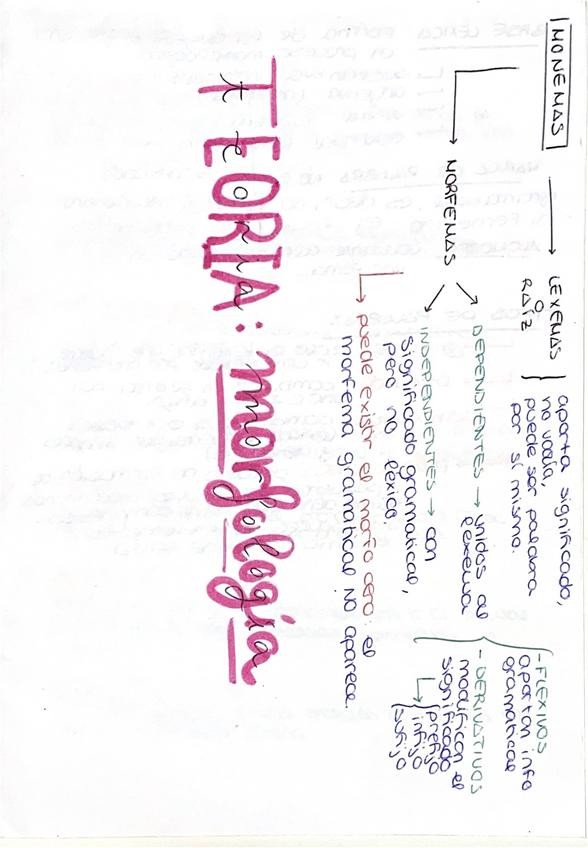 MONEMAS
LEXEMAS
O
RAÍZ
aporta significado,
no varía,
puede ser palabra
por sí mismo.
MORFEMAS
DEPENDIENTES → unidos al
lexema
- FLEXIVOS
aportan info
gramatical
- DERIVATIVOS
modifican el
significado
prefijo
infijo
sufijo
INDEPENDIENTES → con
significado gramatical,
pero no léxico
puede existir el morfo cero: el
morfema gramatical NO aparece.
TEORIA: morfología